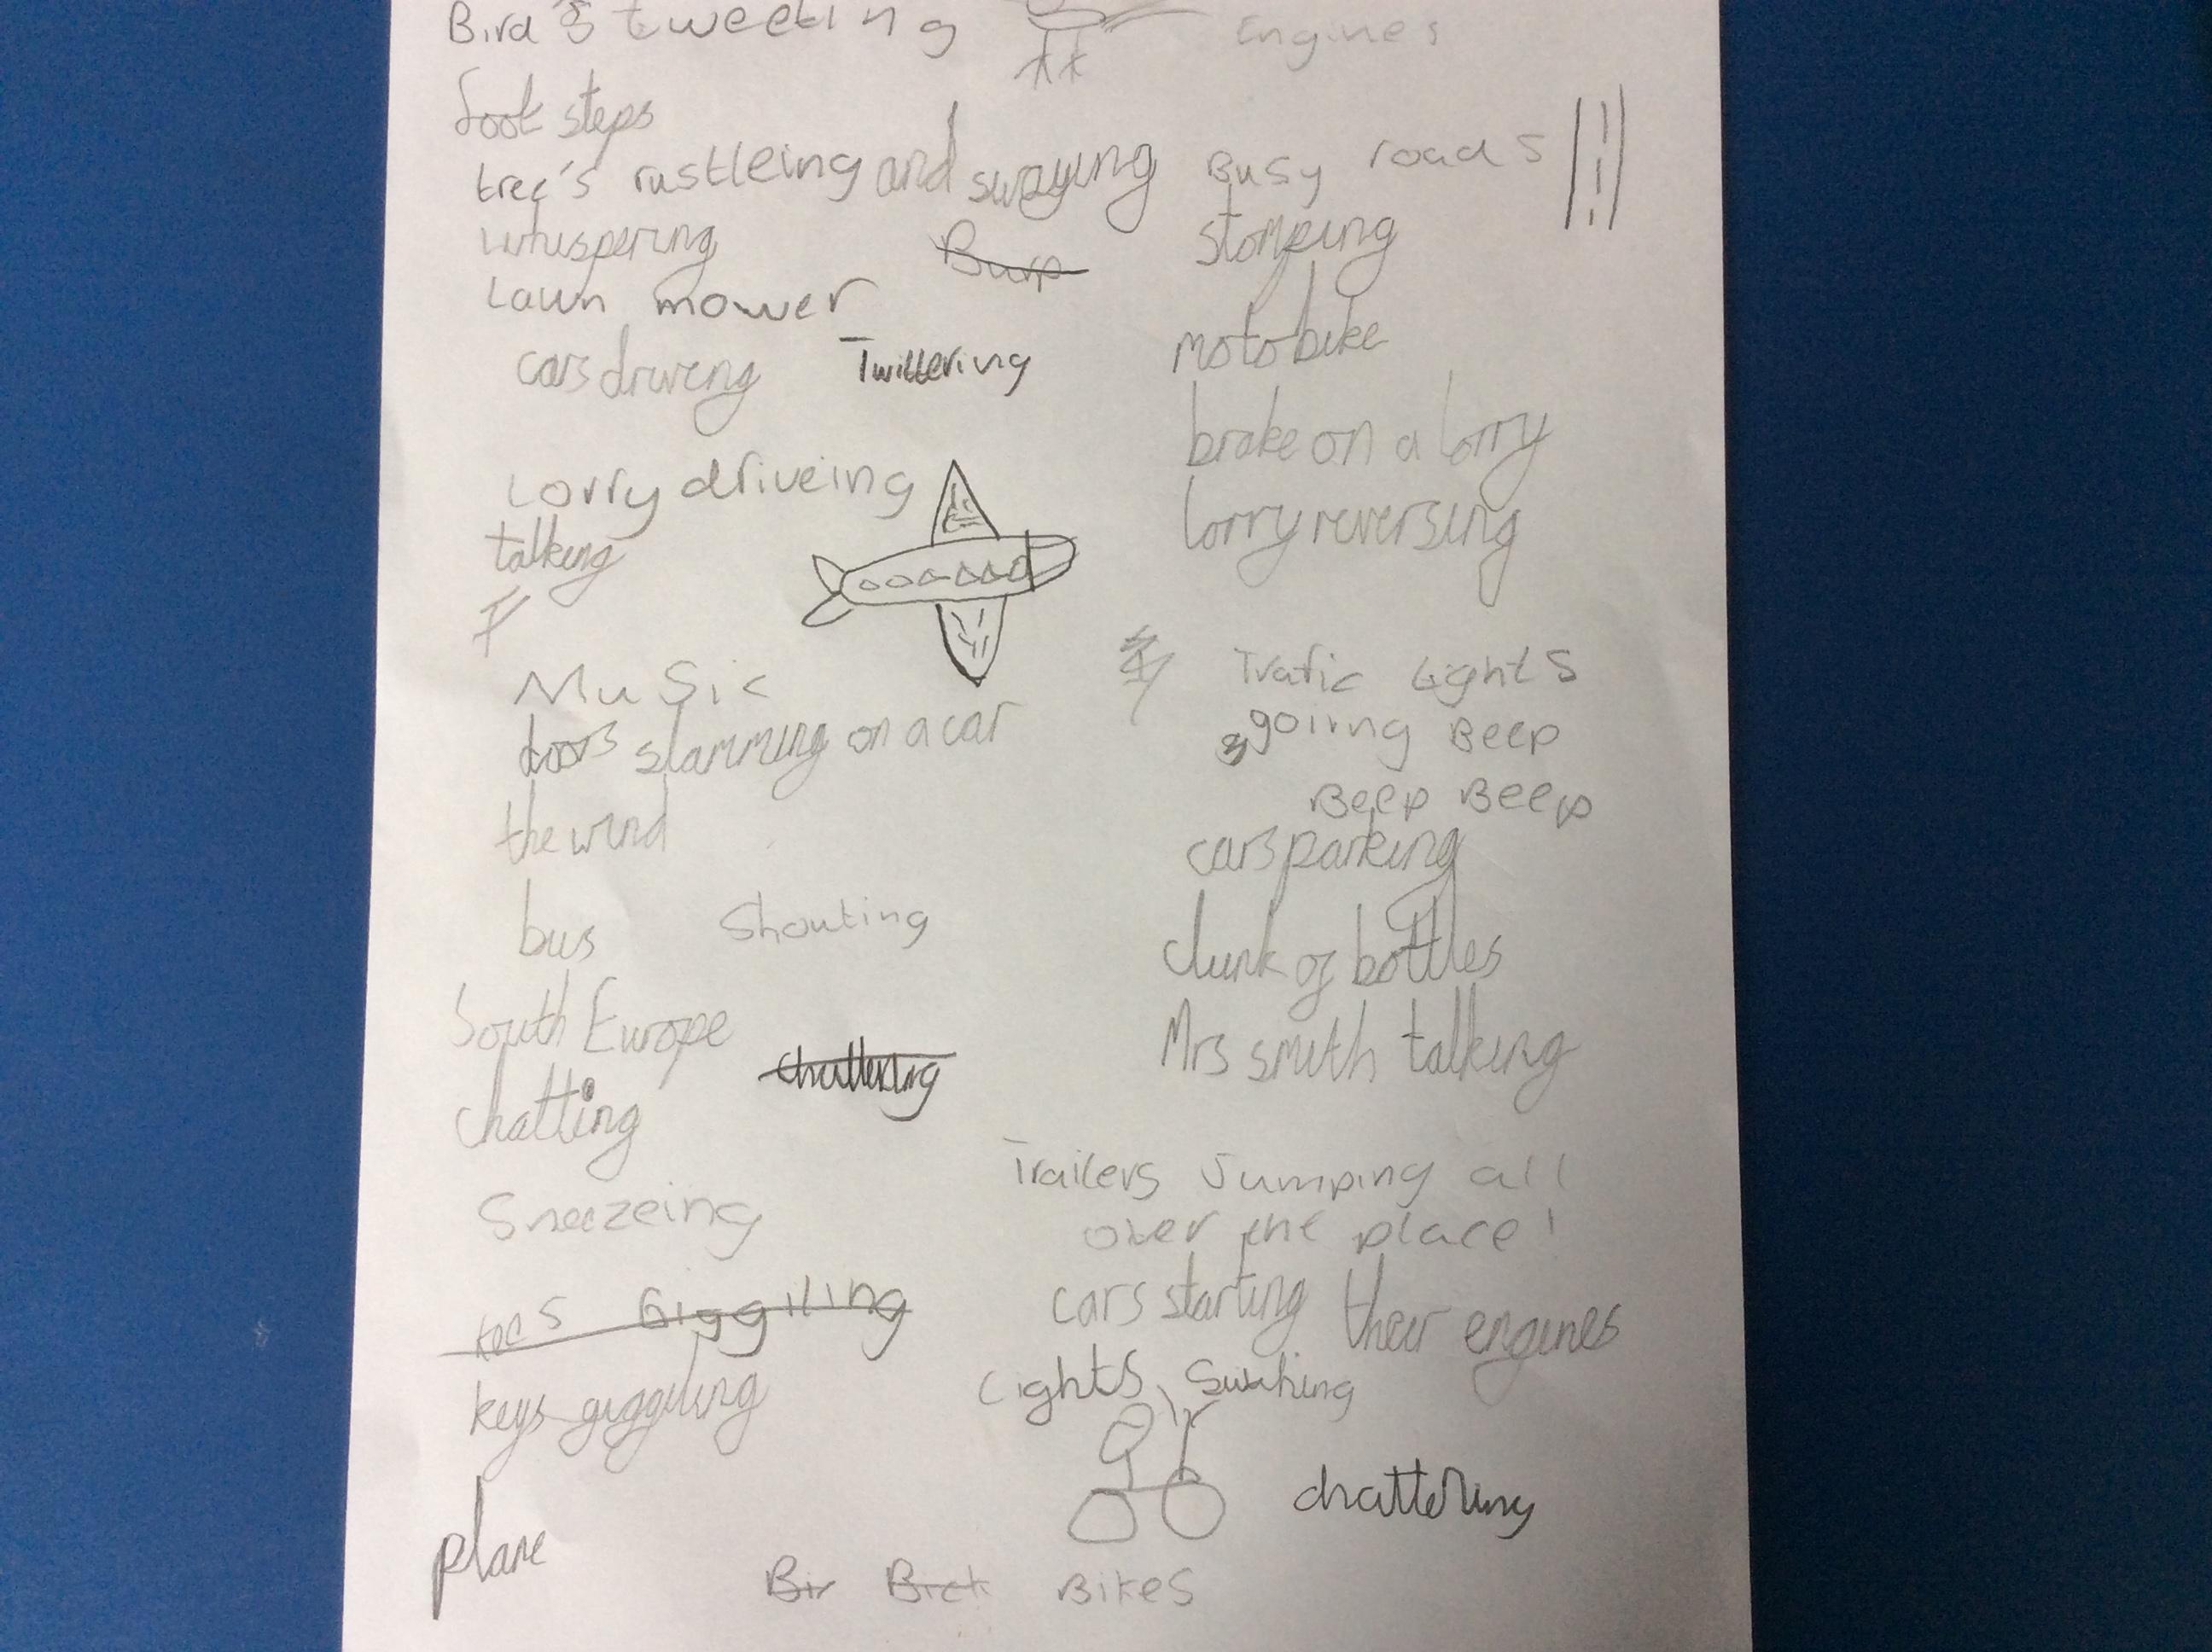 Bird's tweeting
Engines
foot steps
tree's rustleing and swaying
Busy roads
whispering
Burp
stomping
Lawn mower
motobike
cars driveing
Twittering
brake on a lorry
Lorry driveing
lorry reversing
talking
Music
Trafic Lights
going Beep
Beep Beep
doors slamming on a car
the wind
cars parking
bus
Shouting
clunk of bottles
South Europe
Mrs smith talking
chattering
chatting
Trailers Jumping all
over the place!
Sneezeing
cars starting their engines
Giggiling
Lights
keys giggling
chattering
plane
Bir
Bikes